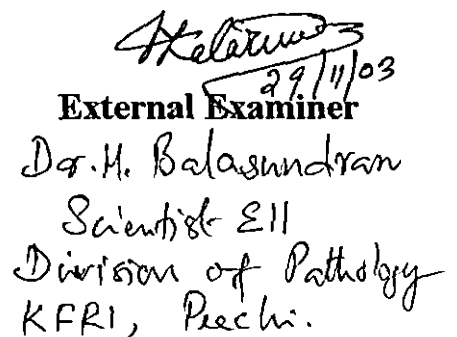 29/11/03
External Examiner
Dr. M. Balasundran
Scientist EII
Division of Pathology
KFRI, Peechi.